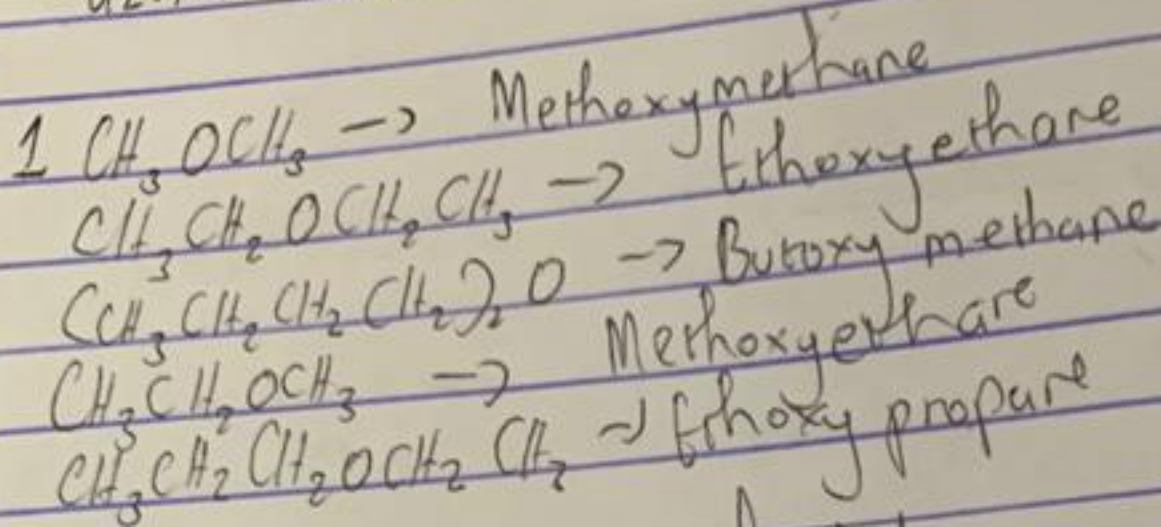 1 CH₃OCH₃ -> Methoxymethane
CH₃CH₂OCH₂CH₃ -> Ethoxyethane
(CH₃CH₂CH₂CH₂)₂O -> Butoxy methane
CH₃CH₂OCH₃ -> Methoxyethane
CH₃CH₂CH₂OCH₂CH₂ -> Ethoxy propane